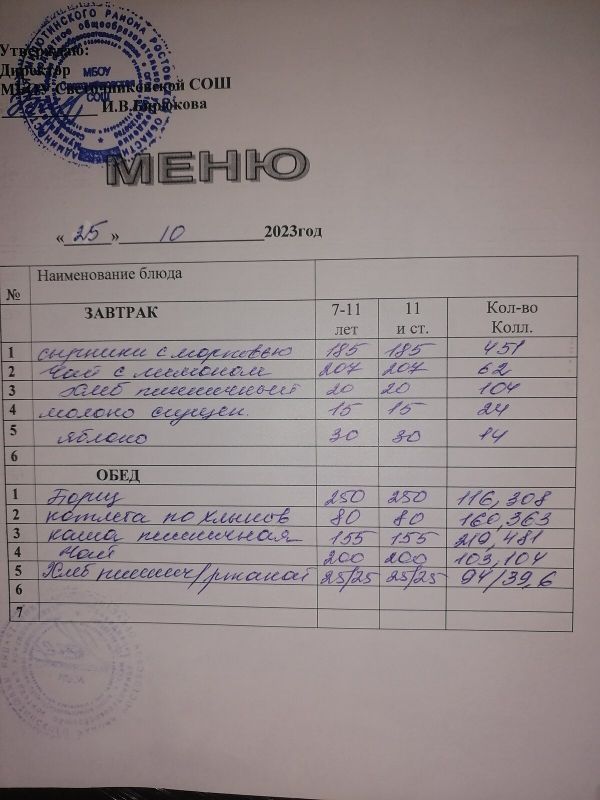 Утверждаю:
Директор
МБОУ Светочниковской СОШ
И.В.Бирюкова
МБОУ
СОШ
МЕНЮ
« 25 » 10 2023год
№ Наименование блюда
ЗАВТРАК 7-11 лет 11 и ст. Кол-во Колл.
1 сырники с морковью 185 185 451
2 Чай с лимоном 207 207 62
3 Хлеб пшеничный 20 20 104
4 молоко сгущен. 15 15 24
5 яблоко 30 30 14
6
ОБЕД
1 Борщ 250 250 116,308
2 котлета по хлынов 80 80 160,363
3 каша пшеничная 155 155 219,481
4 Чай 200 200 103,104
5 Хлеб пшенич/ржаной 25/25 25/25 94/39,6
6
7